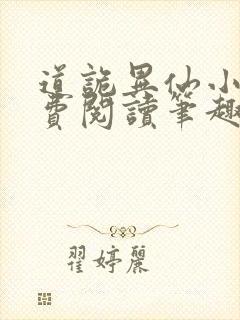 道詭異仙小
費閱讀筆趣
翟婷麗